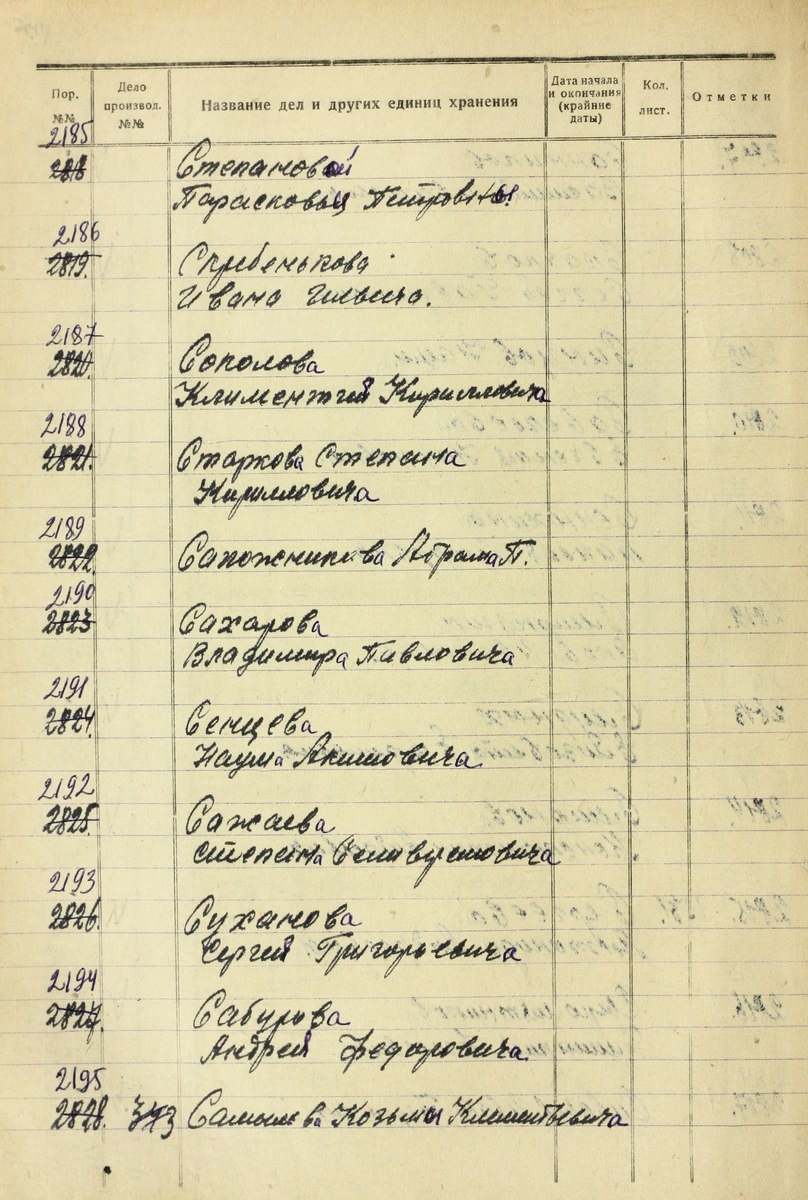 Пор. №№
Дело производ. №№
Название дел и других единиц хранения
Дата начала и окончания (крайние даты)
Кол. лист.
Отметки
2185
Степановой
Парасковьи Петровны
2186
2819.
Ивана Ильича.
2187
2820.
Соколова
Климентия Кирилловича
2188
2821.
Старкова Степана
Кирилловича
2189
2822.
Сапожникова Абрама П.
2190
2823
Сахарова
Владимира Павловича
2191
2824.
Сенцева
Наума Акимовича
2192
2825.
Сажаева
Степана Селиверстовича
2193
2826.
Суханова
Сергея Григорьевича
2194
2827.
Сабурова
Андрей Федоровича
2195
2828. 373 Козьмы Климентьевича